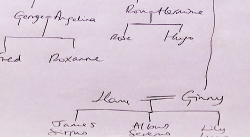 George Angelina Ron Hermione
Fred Roxanne Rose Hugo
Harry Ginny
James Albus Lily
Sirius Severus